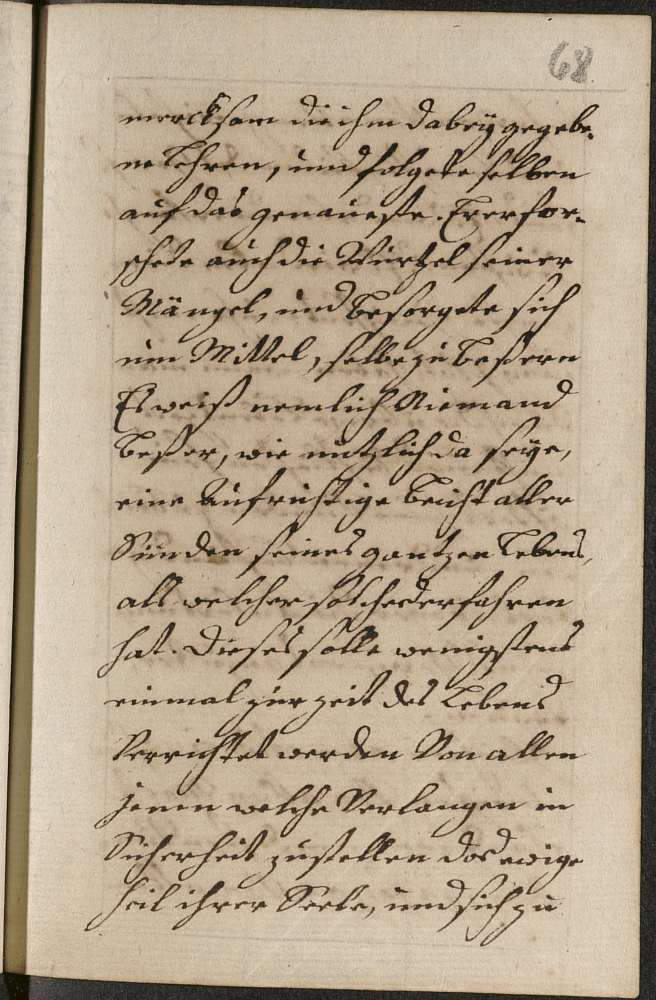 68
mercksam die ihm dabey gegebe-
ne Lehren, und folgete selben
auf das genaueste. Er erfor-
schete auch die Wurtzel seiner
Mängel, und besorgete sich
um Mittel, selbe zu beßeren
Es weiß nemlich Niemand
beßer, wie nutzlich da seye,
eine aufrichtige beicht aller
Sünden seines gantzen Lebens,
als welcher solches erfahren
hat. Dieses solle wenigstens
einmal zur zeit des Lebens
Verrichtet werden Von allen
jenen welche Verlangen in
Sicherheit zustellen das ewige
heil ihrer Seele, und sich zu